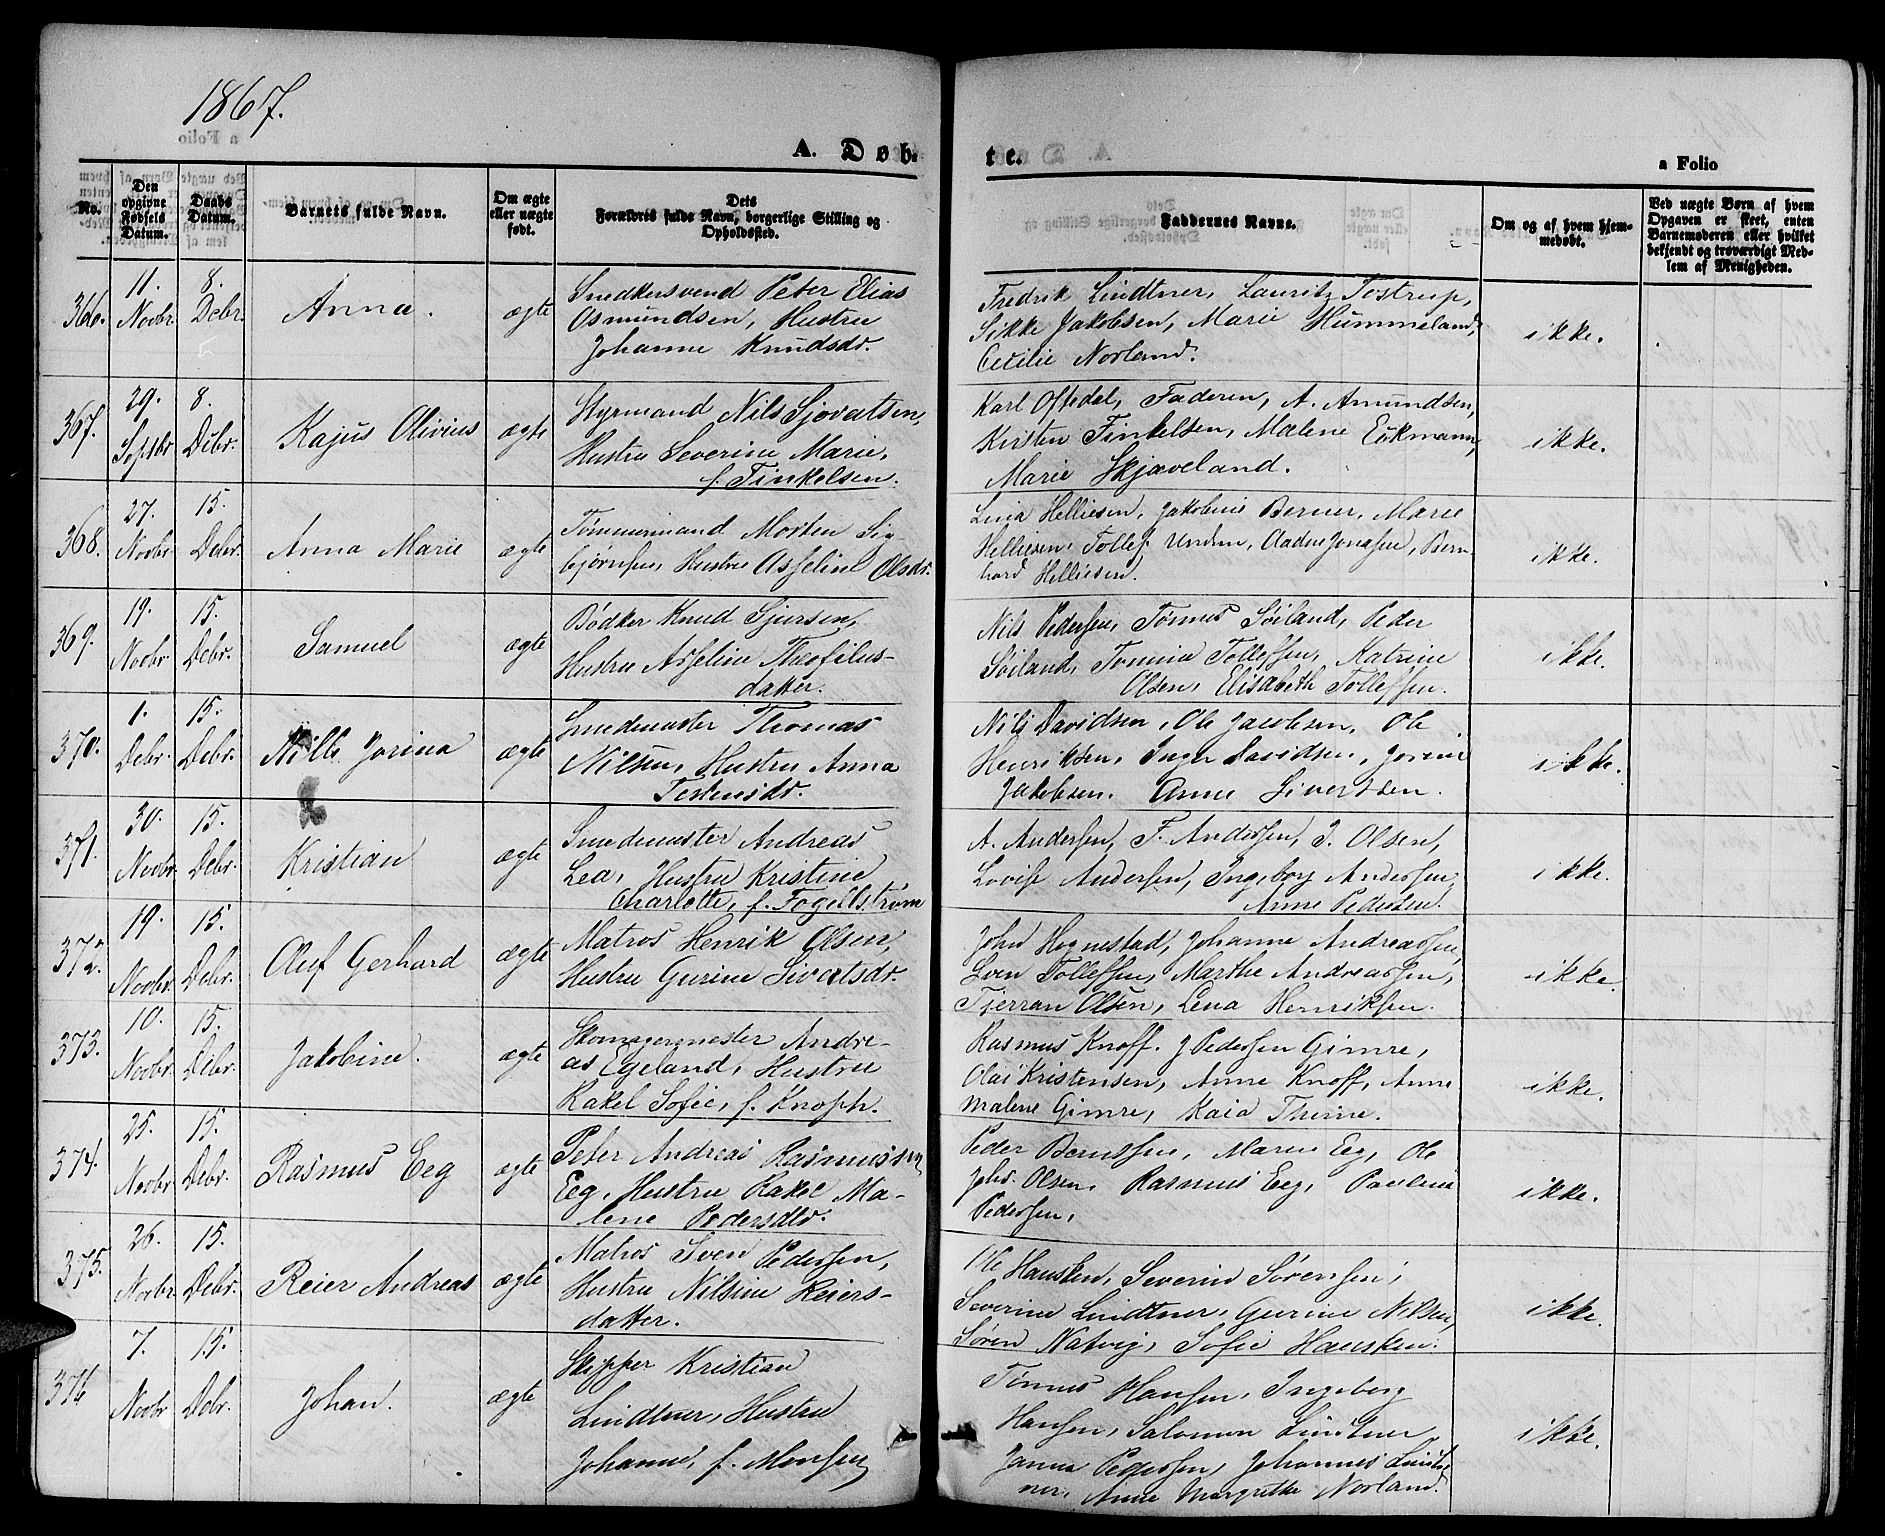 1867.
A. Døb.
te.
a Folio
No.
Den opgivne Fødsels Datum.
Daabs Datum.
Barnets fulde Navn.
Om ægte eller uægte født.
Dets Forældres fulde Navn, borgerlige Stilling og Opholdssted.
Faddernes Navne.
Om og af hvem hjemmedøbt.
Ved uægte Børn af hvem Opgaven er skeet, enten Barnemoderen eller hvilket bekjendt og troværdigt Medlem af Menigheden.
366. 11. Novbr 8. Debr. Anna. ægte
Snedkersvend Peter Elias
Osmundsen, Hustru
Johanne Knudsdr.
Fredrik Lindtner, Lauritz Tostrup,
Sikke Jakobsen, Marie Hummeland,
Cecilie Norland.
ikke.
367. 29. Septbr 8. Debr. Kajus Olivius ægte
Styrmand Nils Sjovatsen,
Hustru Severine Marie,
f. Finkelsen.
Karl Oftedal, Faderen, A. Amundsen,
Kirsten Finkelsen, Malene Eckmann,
Marie Skjæveland.
ikke.
368. 27. Novbr 15. Debr Anna Marie ægte
Tømmermand Morten Sig-
bjørnsen, Hustru Asseline Olsdr.
Lina Helliesen, Jakobine Berner, Marie
Helliesen, Tollef Undem, Aadne Jonassen, Bern-
hard Helliesen.
ikke.
369. 19. Novbr 15. Debr. Samuel ægte
Bødker Knud Sjursen,
Hustru Asseline Theofilus-
datter.
Nils Pedersen, Tønnes Søiland, Peder
Søiland, Tomina Tollefsen, Katrine
Olsen, Elisabeth Tollefsen.
ikke.
370. 1. Debr. 15. Debr. Nille Jorina ægte
Smedmester Thomas
Nilsen, Hustru Anna
Testensdr.
Nils Davidsen, Ole Jacobsen, Ole
Henriksen, Inger Davidsen, Jorine
Jakobsen. Anne Sivertsen.
ikke.
371. 30. Novbr. 15. Debr. Kristian ægte
Smedmester Andreas
Lea, Hustru Kristine
Charlotte, f. Fogelstrøm
A. Andersen, F. Andersen, J. Olsen,
Lovise Andersen, Ingeborg Andersen,
Anne Pedersen.
ikke.
372. 19. Novbr. 15. Debr. Oluf Gerhard ægte
Matros Henrik Olsen,
Hustru Gurine Sivertsdr.
John Hognestad, Johanne Andreassen,
Sven Tollefsen, Marthe Andreassen,
Tjerran Olsen, Lena Henriksen.
ikke.
373. 10. Novbr. 15. Debr. Jakobine. ægte
Skomagermester Andre-
as Egeland, Hustru
Rakel Sofie, f. Knoph.
Rasmus Knoff. J Pedersen Gimre,
Olai Kristensen, Anne Knoff, Anne
Malene Gimre, Kaia Thime.
ikke.
374. 25. Novbr 15. Debr. Rasmus Eeg ægte
Peter Andreas Rasmussen
Eeg, Hustru Rakel Ma-
lene Pedersdtr.
Peder Berntsen, Maren Eeg, Ole
Johs. Olsen, Rasmus Eeg, Pauline
Pedersen,
ikke.
375. 26. Novbr 15. Debr. Reier Andreas ægte
Matros Sven Pedersen,
Hustru Nilsine Reiers-
datter.
Ole Hausken, Severin Sørensen,
Severine Lindtner, Gurine Nilsen,
Søren Natvig, Sofie Hausken.
ikke.
376 7. Novbr 15. Debr. Johan. ægte
Skipper Kristian
Lindtner, Hustru
Johanne, f. Monsen
Tønnes Hansen, Ingeborg
Hansen, Salomon Lindtner
Janna Pedersen, Johannes Lindt-
ner, Anne Margrethe Norland.
ikke.